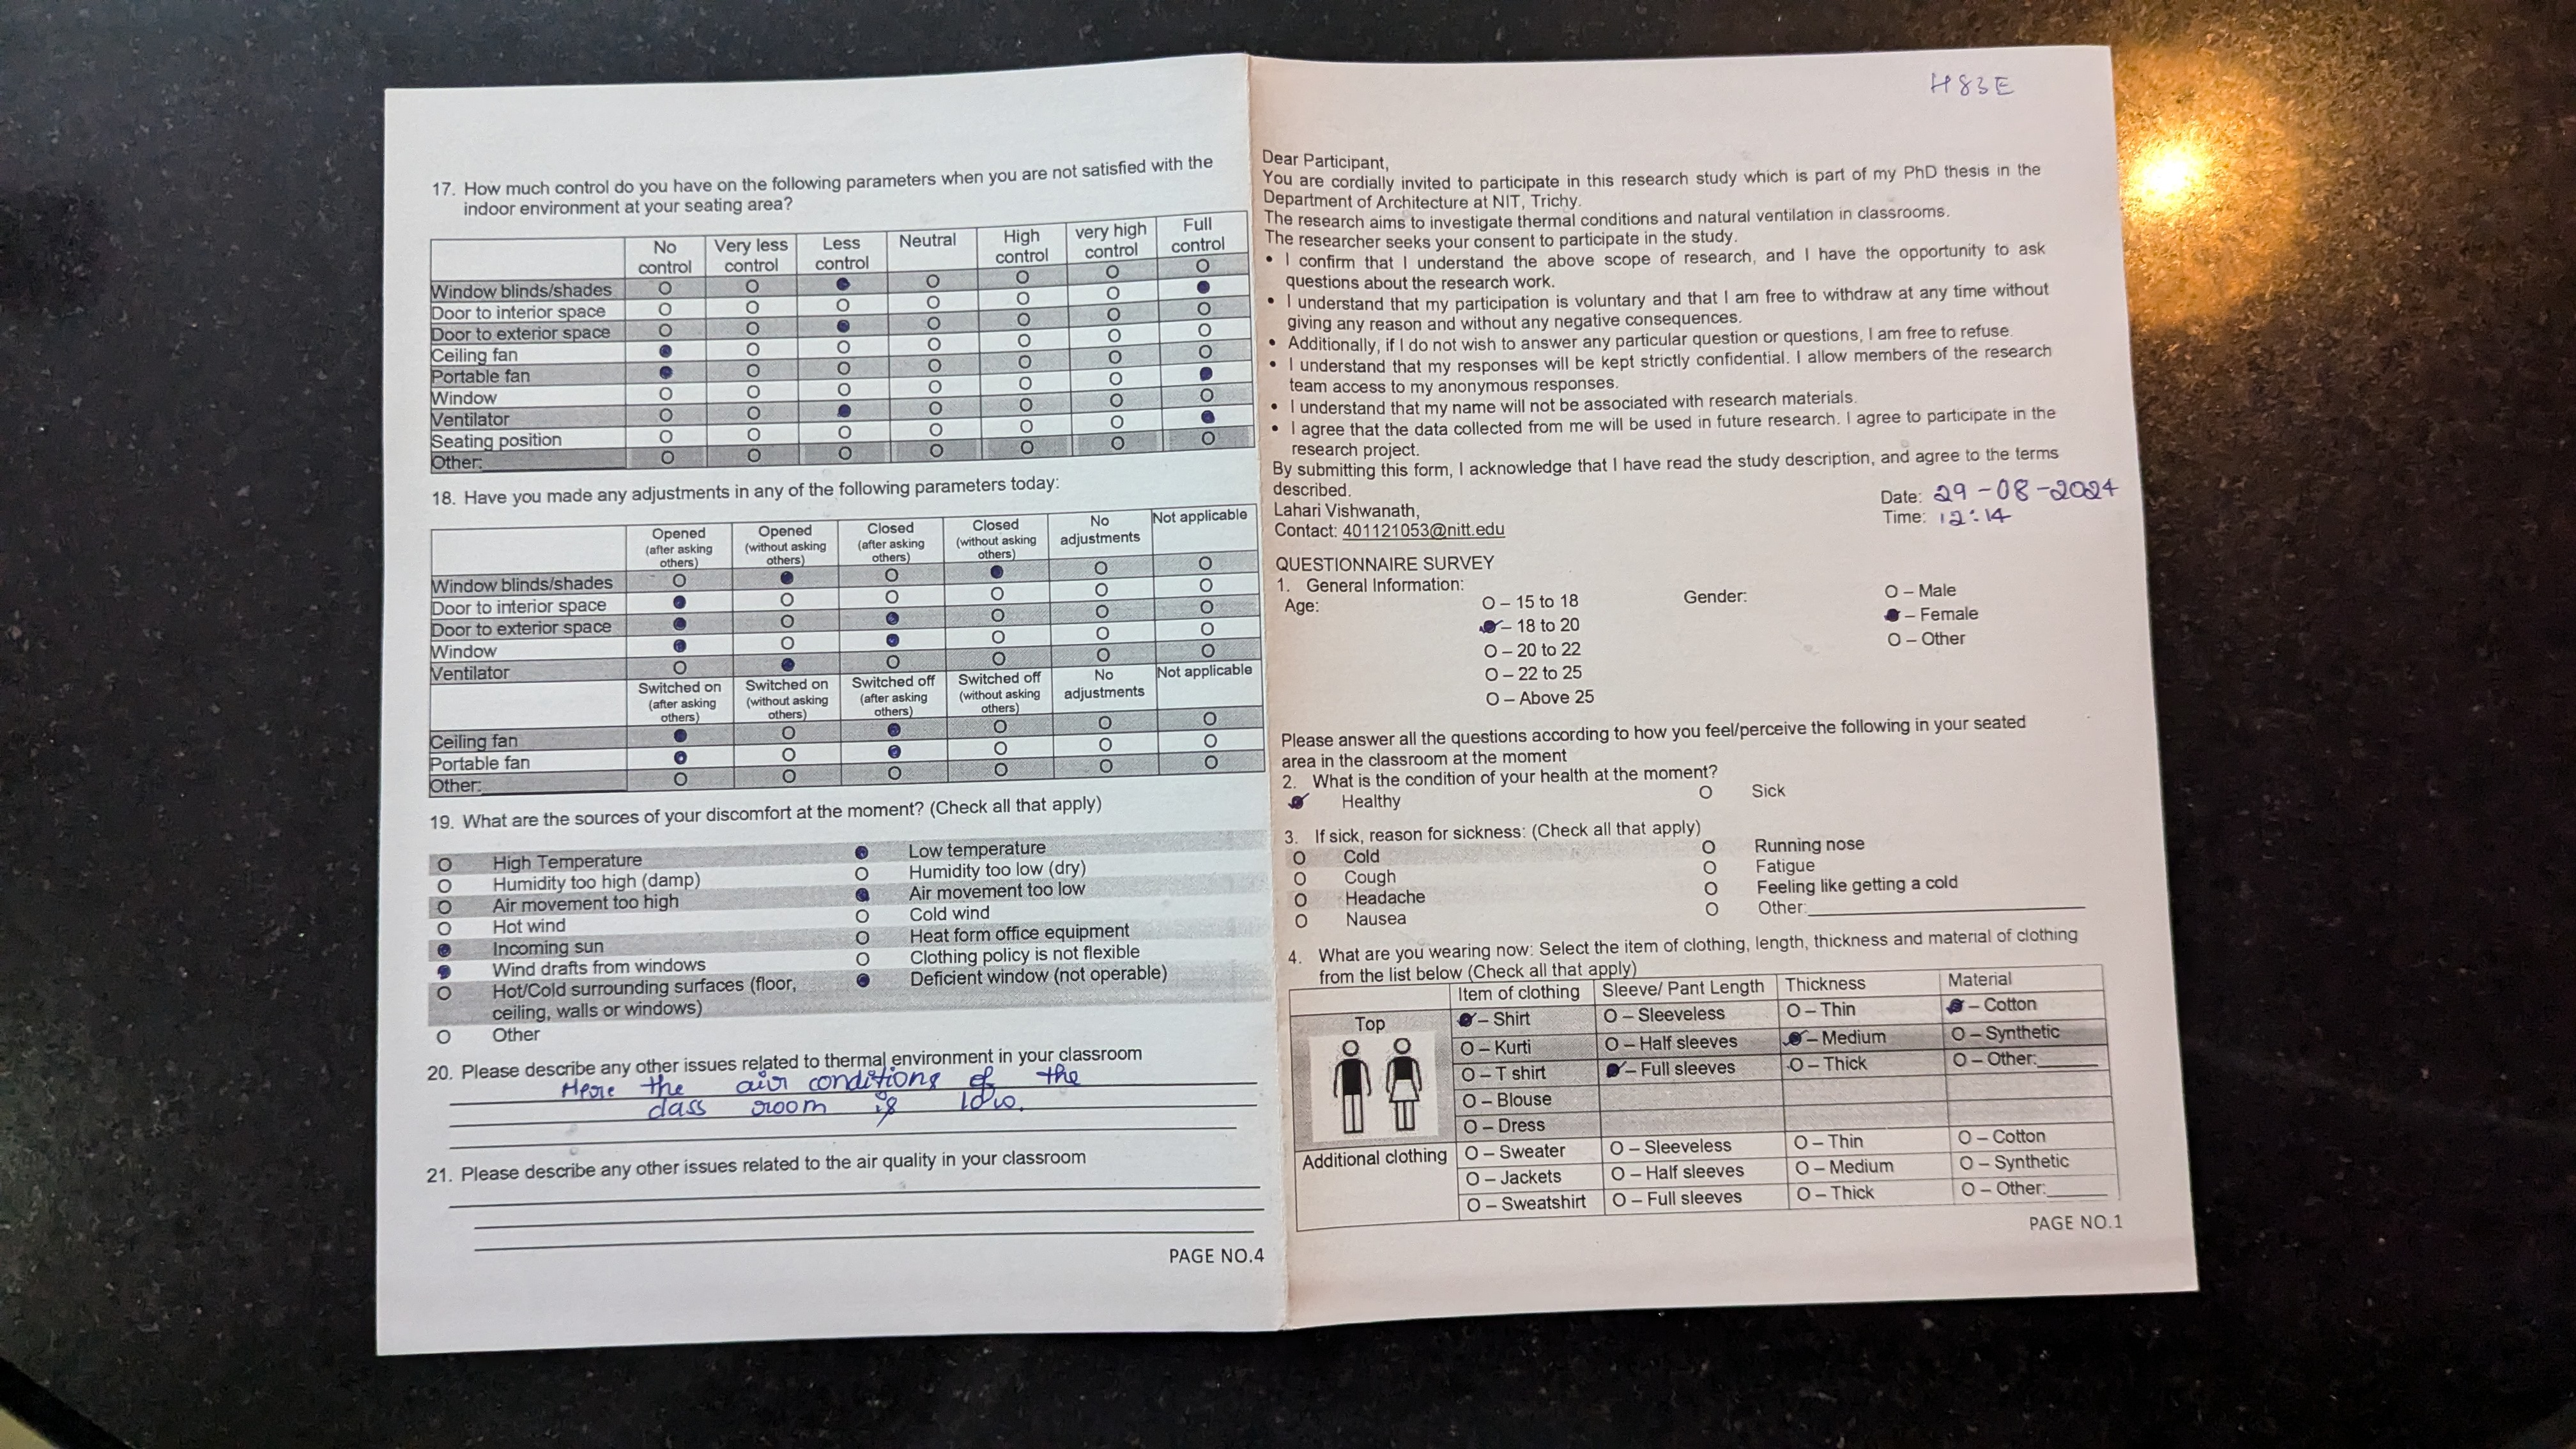 17. How much control do you have on the following parameters when you are not satisfied with the
indoor environment at your seating area?
No control Very less control Less control Neutral High control very high control Full control
Window blinds/shades O O ● O O O O
Door to interior space O O O O O O ●
Door to exterior space O O ● O O O O
Ceiling fan ● O O O O O O
Portable fan ● O O O O O O
Window O O O O O O ●
Ventilator O O ● O O O O
Seating position O O O O O O ●
Other: O O O O O O O
18. Have you made any adjustments in any of the following parameters today:
Opened (after asking others) Opened (without asking others) Closed (after asking others) Closed (without asking others) No adjustments Not applicable
Window blinds/shades O ● O ● O O
Door to interior space ● O O O O O
Door to exterior space ● O ● O O O
Window ● O ● O O O
Ventilator O ● O O O O
Switched on (after asking others) Switched on (without asking others) Switched off (after asking others) Switched off (without asking others) No adjustments Not applicable
Ceiling fan ● O ● O O O
Portable fan ● O ● O O O
Other: O O O O O O
19. What are the sources of your discomfort at the moment? (Check all that apply)
O High Temperature ● Low temperature
O Humidity too high (damp) O Humidity too low (dry)
O Air movement too high ● Air movement too low
O Hot wind O Cold wind
● Incoming sun O Heat form office equipment
● Wind drafts from windows O Clothing policy is not flexible
O Hot/Cold surrounding surfaces (floor, ● Deficient window (not operable)
ceiling, walls or windows)
O Other
20. Please describe any other issues related to thermal environment in your classroom
Here the air conditions of the
class room is low.
21. Please describe any other issues related to the air quality in your classroom
PAGE NO.4
H83E
Dear Participant,
You are cordially invited to participate in this research study which is part of my PhD thesis in the
Department of Architecture at NIT, Trichy.
The research aims to investigate thermal conditions and natural ventilation in classrooms.
The researcher seeks your consent to participate in the study.
• I confirm that I understand the above scope of research, and I have the opportunity to ask
questions about the research work.
• I understand that my participation is voluntary and that I am free to withdraw at any time without
giving any reason and without any negative consequences.
• Additionally, if I do not wish to answer any particular question or questions, I am free to refuse.
• I understand that my responses will be kept strictly confidential. I allow members of the research
team access to my anonymous responses.
• I understand that my name will not be associated with research materials.
• I agree that the data collected from me will be used in future research. I agree to participate in the
research project.
By submitting this form, I acknowledge that I have read the study description, and agree to the terms
described.
Lahari Vishwanath,
Contact: 401121053@nitt.edu
Date: 29-08-2024
Time: 12:14
QUESTIONNAIRE SURVEY
1. General Information:
Age:
O – 15 to 18
● – 18 to 20
O – 20 to 22
O – 22 to 25
O – Above 25
Gender:
O – Male
● – Female
O – Other
Please answer all the questions according to how you feel/perceive the following in your seated
area in the classroom at the moment
2. What is the condition of your health at the moment?
● Healthy O Sick
3. If sick, reason for sickness: (Check all that apply)
O Cold O Running nose
O Cough O Fatigue
O Headache O Feeling like getting a cold
O Nausea O Other:
4. What are you wearing now: Select the item of clothing, length, thickness and material of clothing
from the list below (Check all that apply)
Item of clothing Sleeve/ Pant Length Thickness Material
Top ● – Shirt O – Sleeveless O – Thin ● – Cotton
O – Kurti O – Half sleeves ● – Medium O – Synthetic
O – T shirt ● – Full sleeves O – Thick O – Other:
O – Blouse
O – Dress
Additional clothing O – Sweater O – Sleeveless O – Thin O – Cotton
O – Jackets O – Half sleeves O – Medium O – Synthetic
O – Sweatshirt O – Full sleeves O – Thick O – Other:
PAGE NO.1